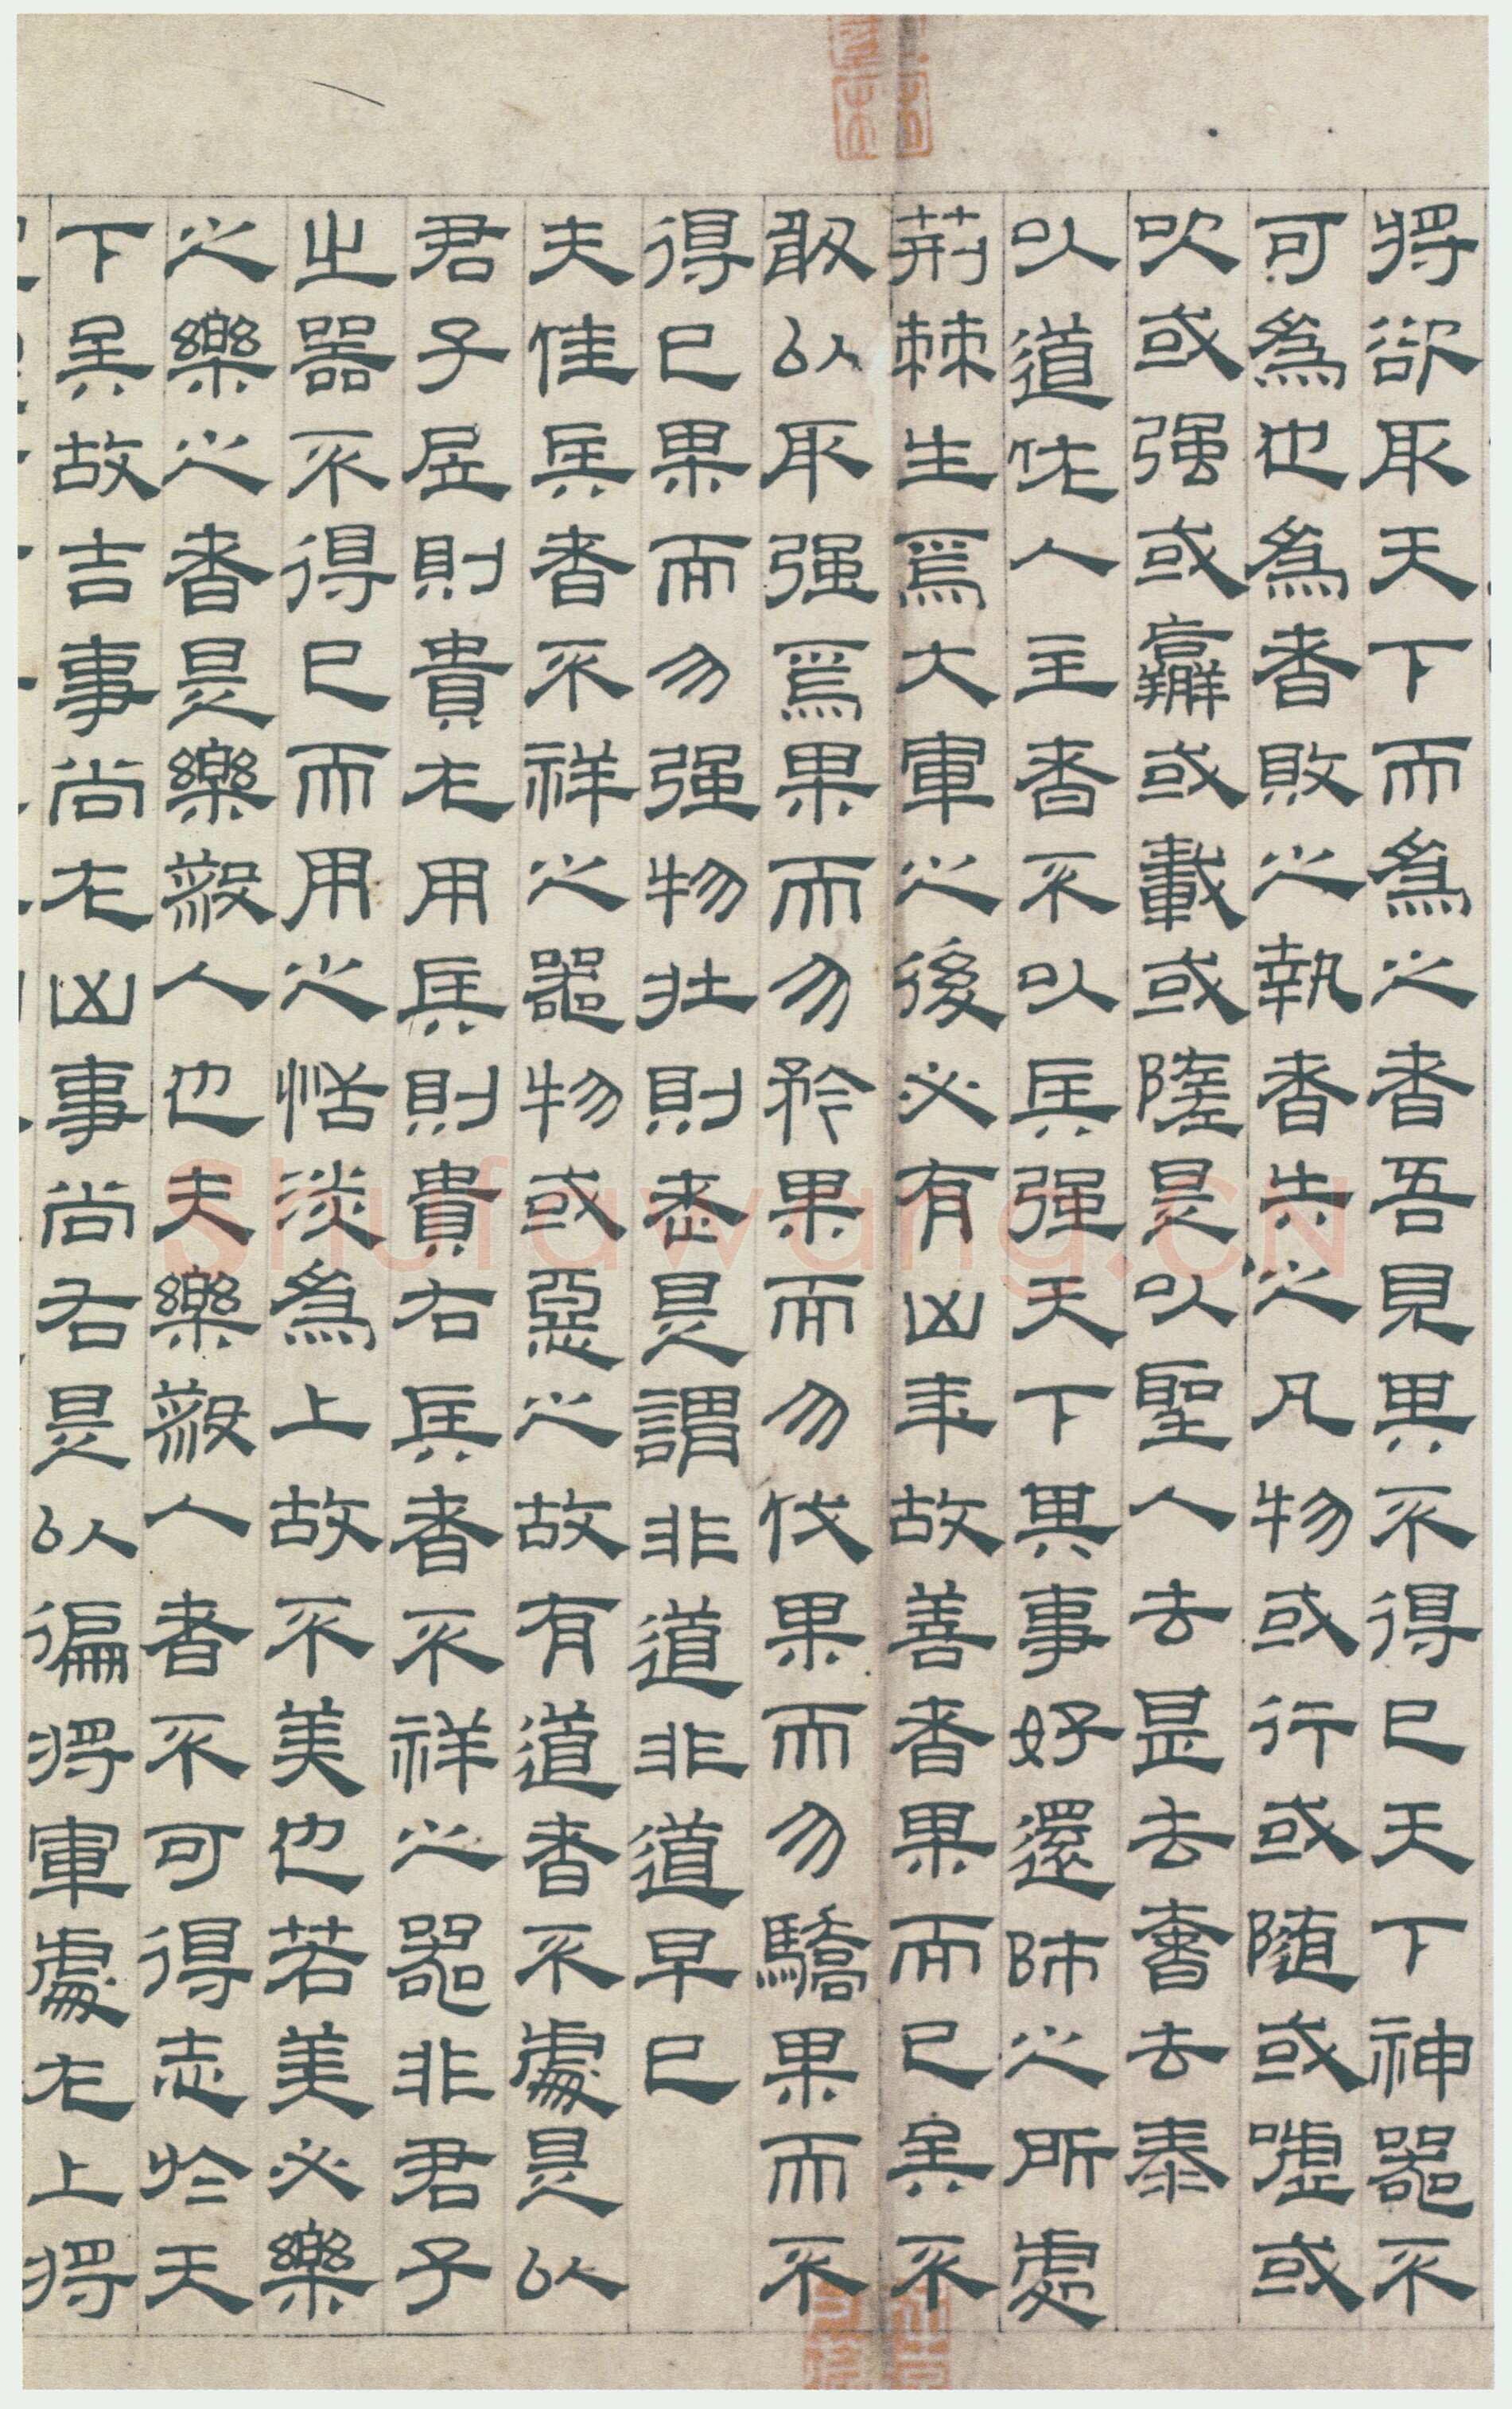 將欲取天下而為之者吾見其不得已天下神器不
可為也為者敗之執者失之凡物或行或随或噓或
吹或强或羸或載或隳是以聖人去甚去奢去泰
以道佐人主者不以兵强天下其事好還師之所處
荊棘生焉大軍之後必有凶年故善者果而已矣不
敢以取强焉果而勿矜果而勿伐果而勿驕果而不
得已果而勿强物壯則老是謂非道非道早已
夫佳兵者不祥之器物或惡之故有道者不處是以
君子居則貴左用兵則貴右兵者不祥之器非君子
之器不得已而用之恬淡為上故不美也若美必樂
之樂之者是樂殺人也夫樂殺人者不可得志於天
下矣故吉事尚左凶事尚右是以偏將軍處左上將
Shufawang.CN